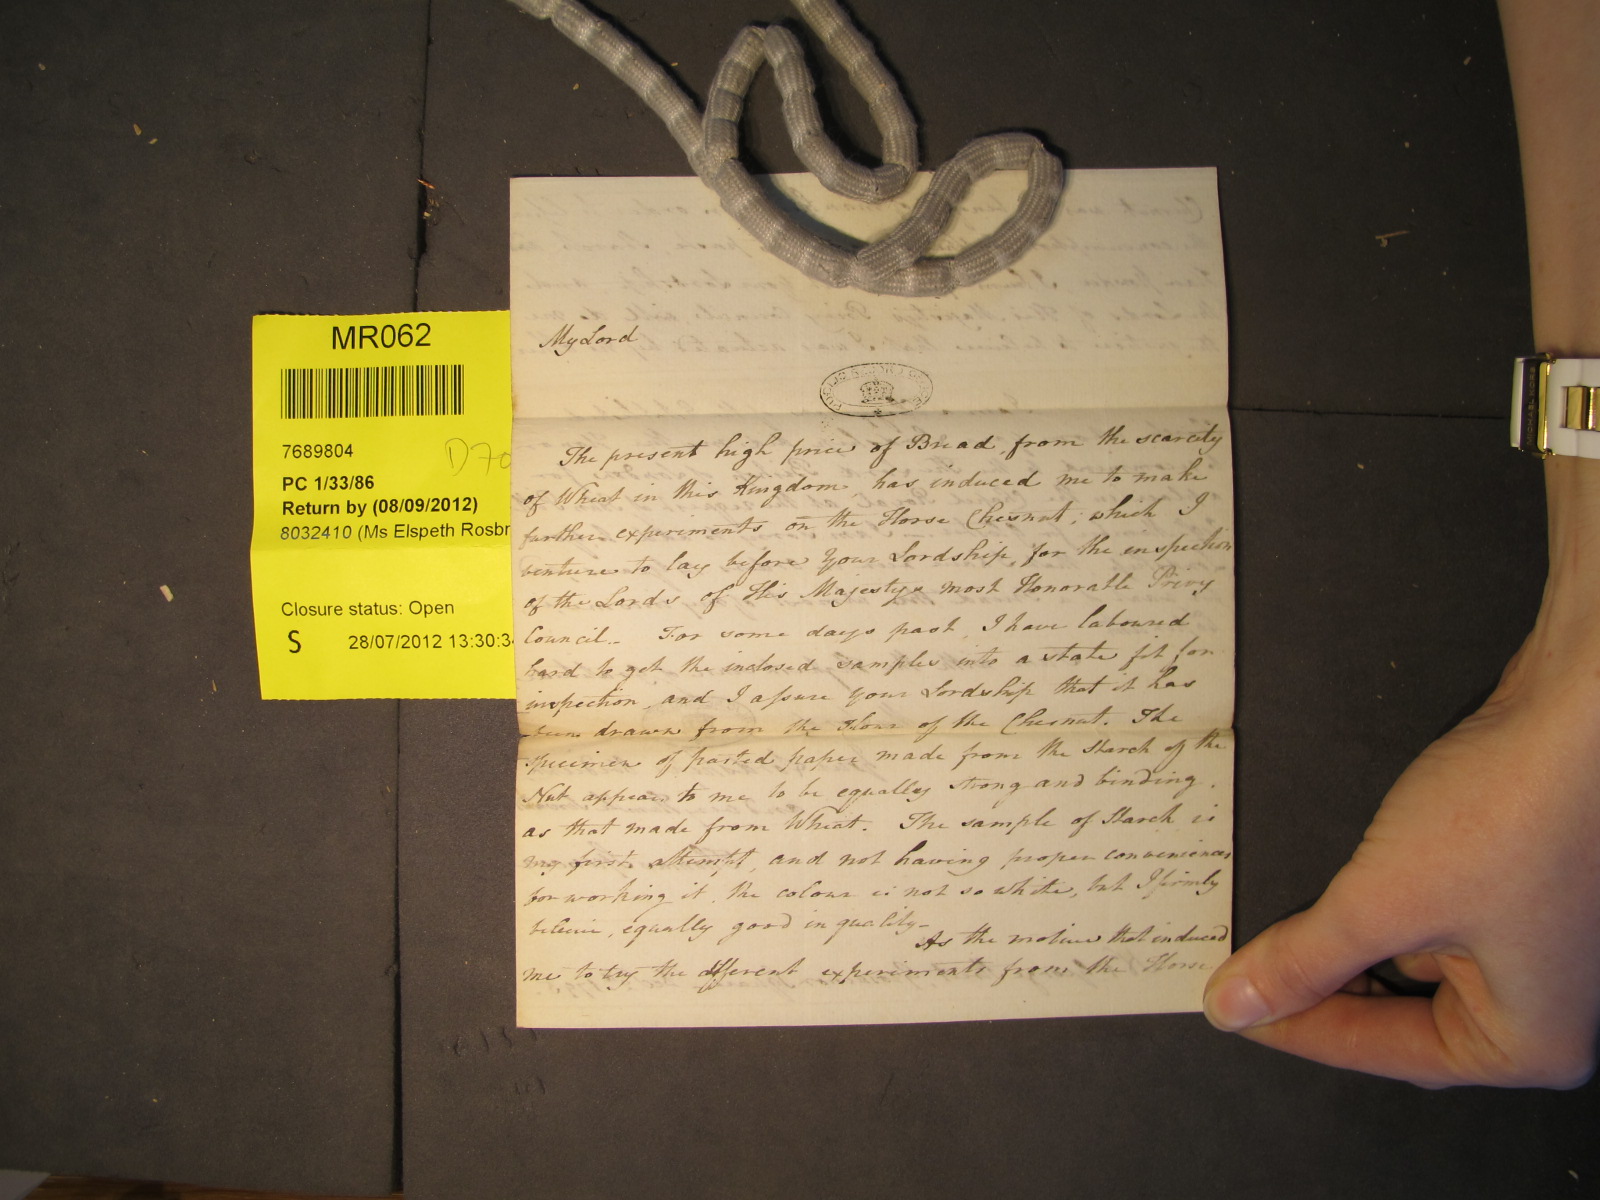 MR062
7689804
D70
PC 1/33/86
Return by (08/09/2012)
8032410 (Ms Elspeth Rosbr
Closure status: Open
S 28/07/2012 13:30:3
My Lord
PUBLIC RECORD OFFICE
The present high price of Bread, from the scarcity
of Wheat in this Kingdom, has induced me to make
further experiments on the Horse Chesnut; which I
venture to lay before your Lordship, for the inspection
of the Lords of His Majestys most Honorable Privy
Council.. For some days past, I have laboured
hard to get the inclosed samples into a state fit for
inspection, and I assure your Lordship that it has
been drawn from the Flour of the Chesnut. The
specimen of pasted paper made from the Starch of the
Nut appears to me to be equally strong and binding,
as that made from Wheat. The sample of Starch is
my first attempt, and not having proper conveniences
for working it, the colour is not so white, but I firmly
believe, equally good in quality-
As the motive that induced
me to try the different experiments from the Horse
MICHAEL KORS